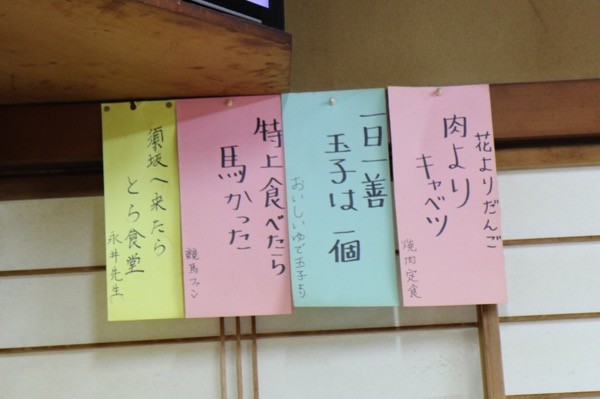 花よりだんご
肉より
キャベツ
焼肉定食
一日一善
玉子は一個
おいしいゆで玉子より
特上食べたら
馬かった
競馬ファン
須坂へ来たら
とら食堂
永井先生